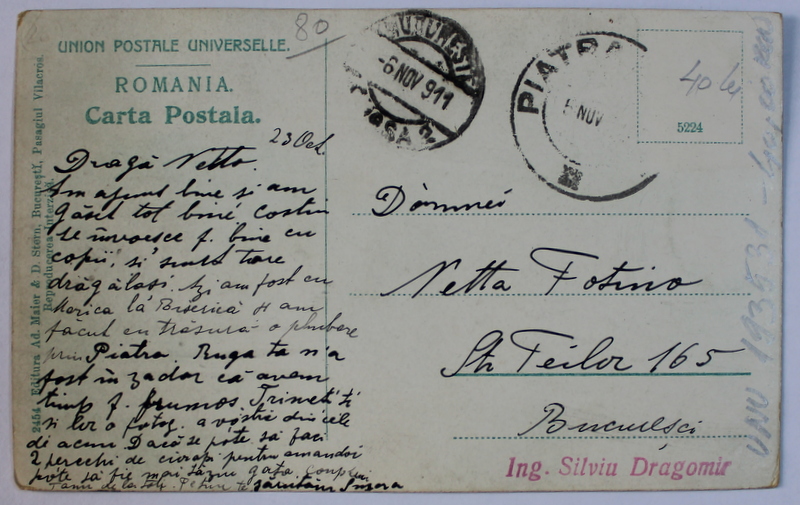 80
UNION POSTALE UNIVERSELLE.
ROMANIA.
Carta Postala.
2454. Editura Ad. Maier & D. Stern, Bucureştĭ, Pasagiul Vilacros.
Reproducerea interzisă.
-6 NOV 911
PIATRA
5 NOV
40 lei
5224
23 Oct.
Dragă Netto.
Am ajuns bine și am
găsit tot bine, Costin
se învoește f. bine cu
copii, si sunt tare
drăgălași. Azi am fost cu
Marica la Biserică și am
făcut cu trăsura o plimbare
prin Piatra. Ruga ta n'a
fost în zadar că avem
timp f. frumos. Trimete ți
si lor o fotog. a vóstră din cele
de acum Dacă se póte să faci
2 perechi de ciorapi pentru amandoi
póte să fie mai târziu gata.
Dómnei
Netta Fotino
Str Teilor 165
Bucureşci
Ing. Silviu Dragomir